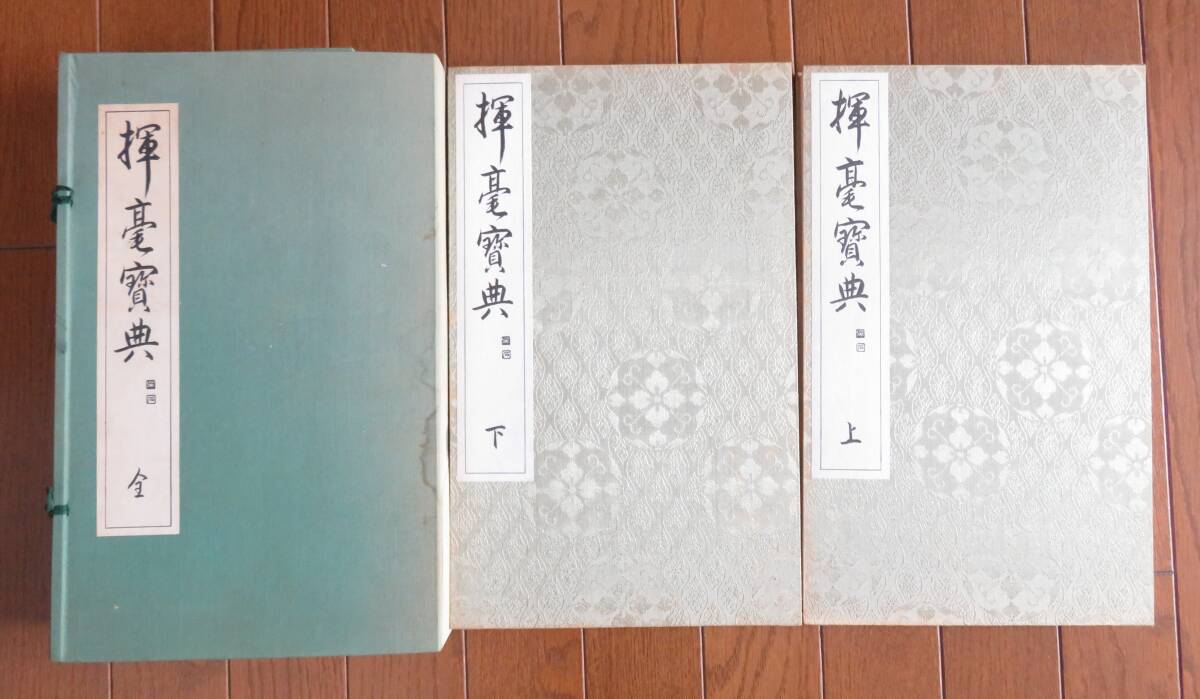 揮毫寶典
全
揮毫寶典
下
揮毫寶典
上